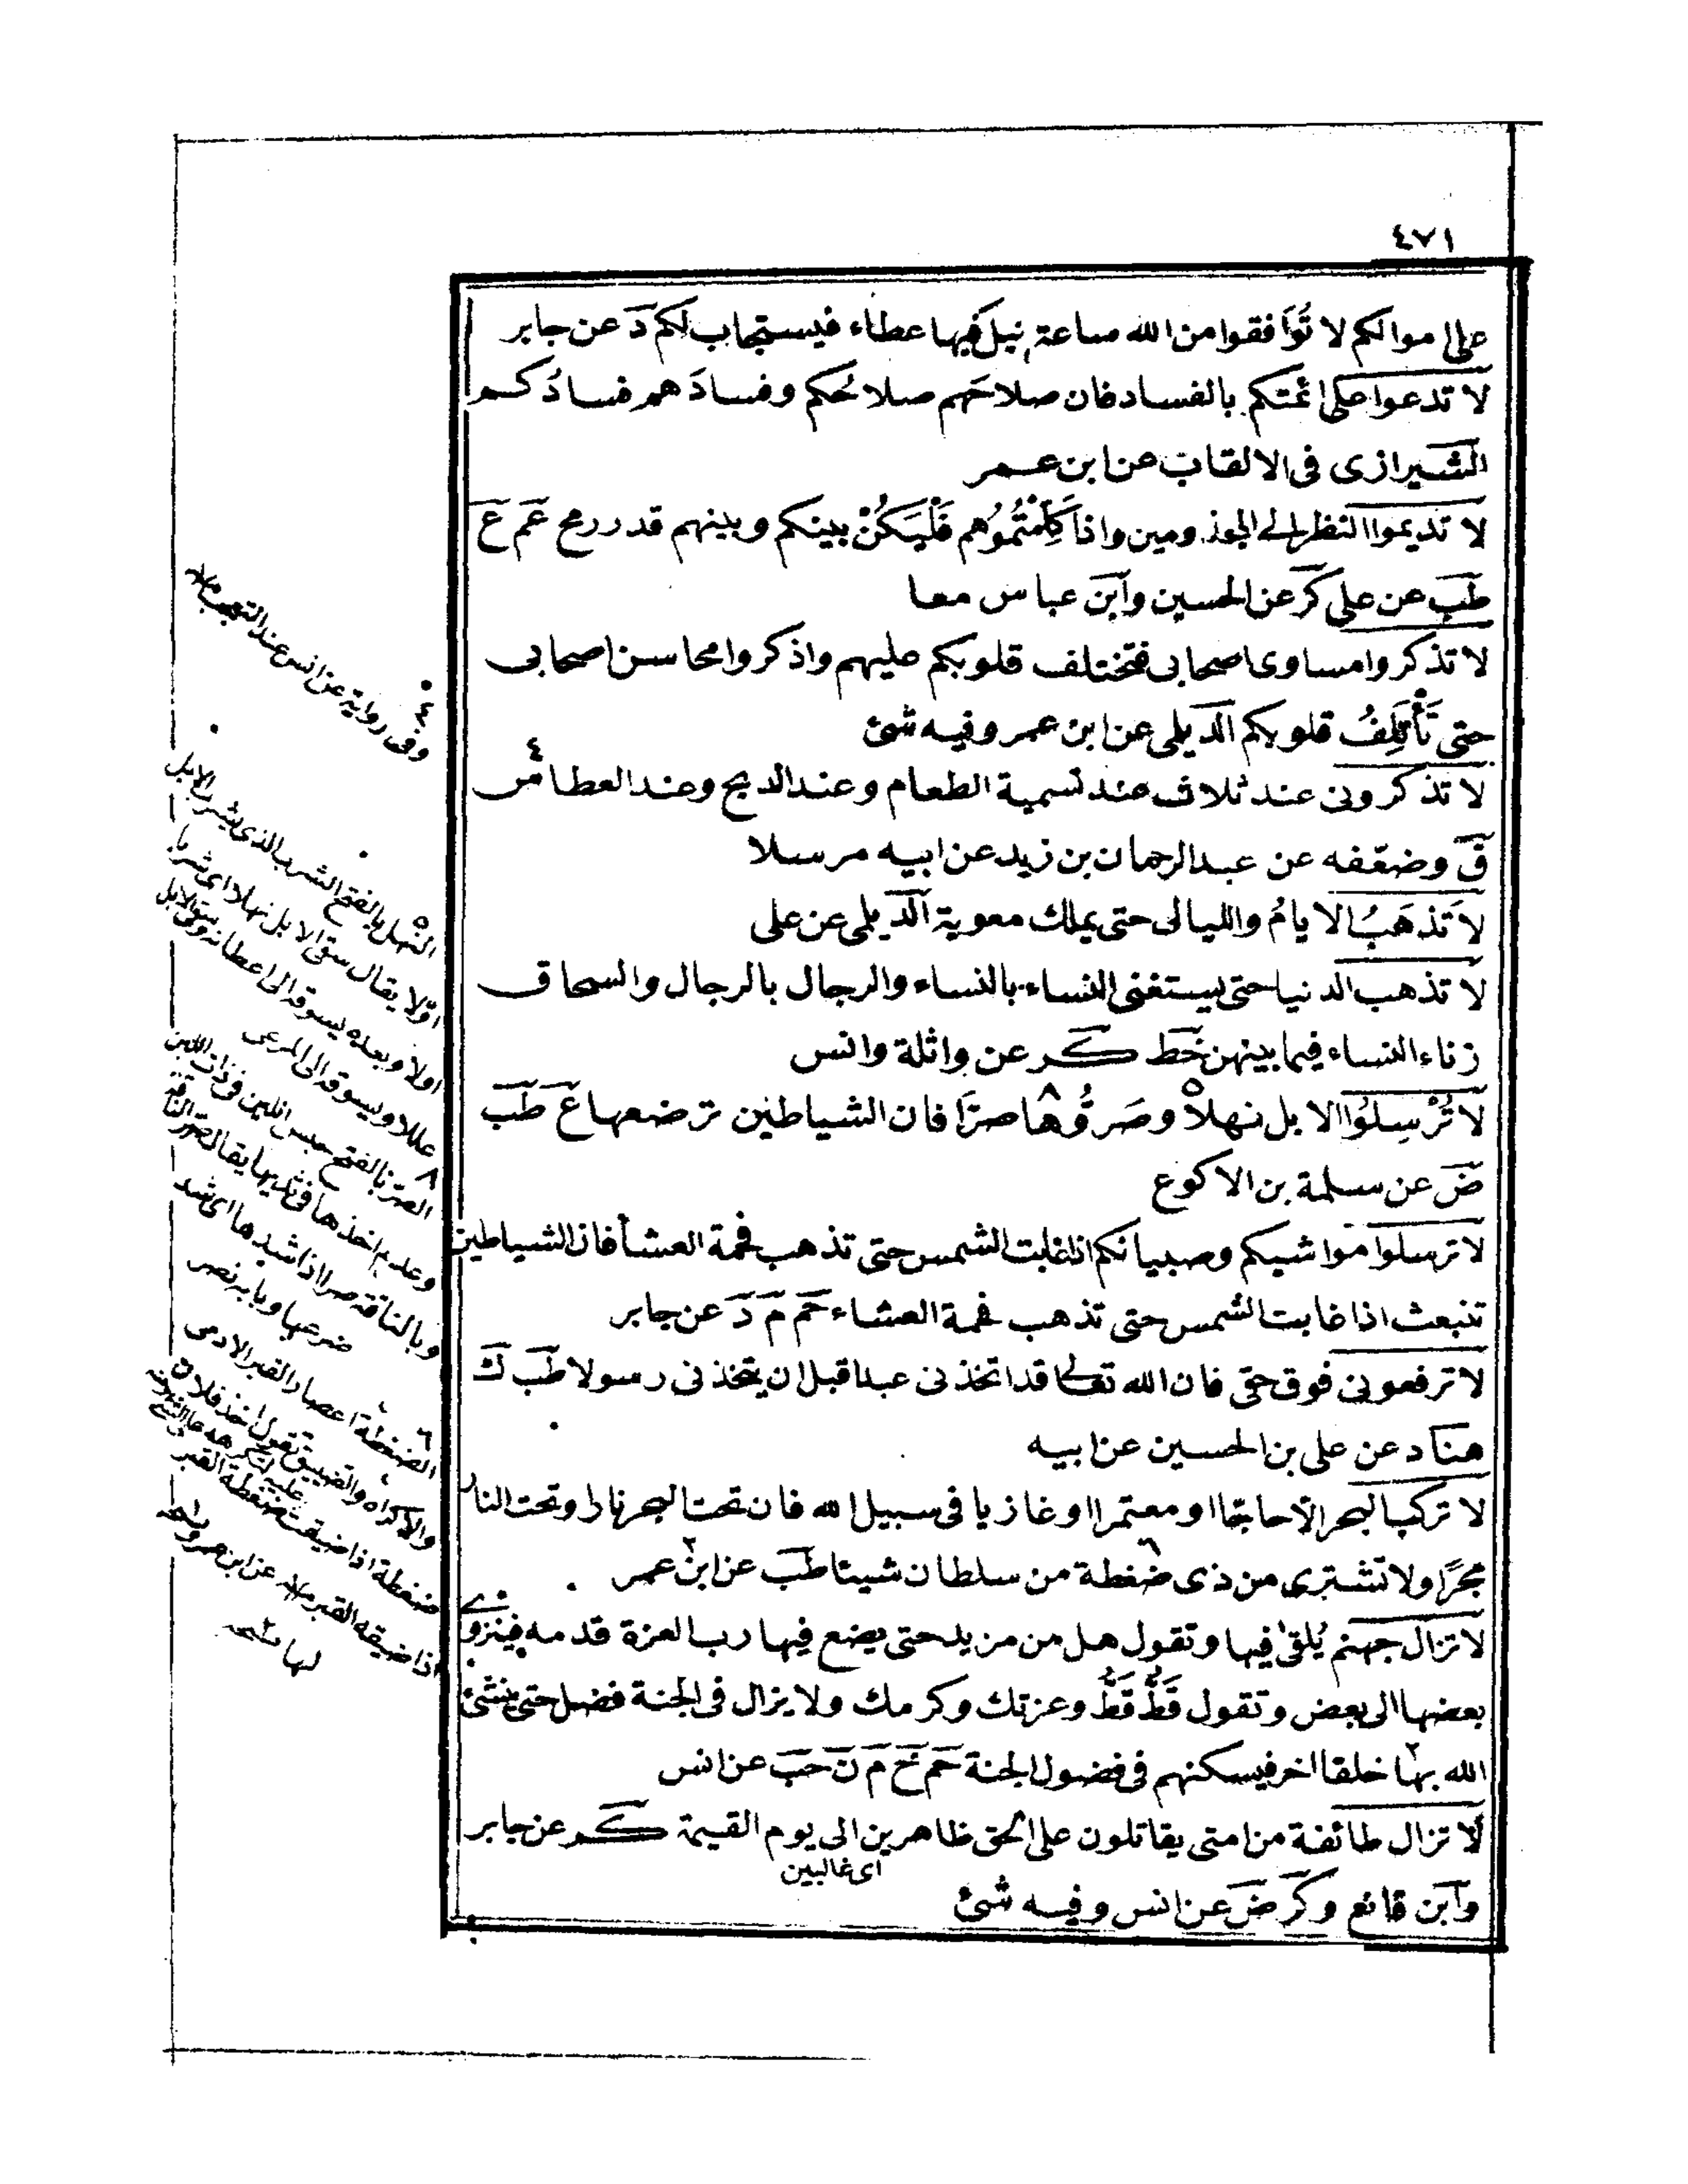 ٤٧١
على اموالكم لا تُوَافقوا من الله ساعة نيل فيها عطاء فيستجاب لكم دَ عن جابر
لا تدعوا على ائمتكم بالفساد فان صلاحَهم صلاحُكم وفسادَهم فسادُكم
الشيرازى فى الالقاب عن ابن عمر
لا تديموا النظر الى المجذومين واذا كَلَّمْتُمُوُهم فَلْيَكُنْ بينكم وبينهم قدر رمح عَم عَ
طَب عن على كَر عن الحسين وابَن عباس معا
لا تذكروا مساوى اصحابى فتختلف قلوبكم عليهم واذكروا محاسن اصحابى
حتى تَأْتَلِفُ قلوبكم الدَيلمى عن ابن عمر وفيه شئ
لا تذكرونى عند ثلاث عند تسمية الطعام وعند الذبح وعند العطاس ٤
قَ وضعّفه عن عبد الرحمان بن زيد عن ابيه مرسلا
لاَ تذهَبُ الايامُ والليالى حتى يملك معوية الدَيلمى عن على
لا تذهب الدنيا حتى يستغنى النساء بالنساء والرجال بالرجال والسحاق
زناء النساء فيما بينهن خَط كَر عن واثلة وانس
لا تُرْسِلُوا الابل نهلا ٥ وصَرُّوُها ٨ صرًا فان الشياطين ترضعها عَ طَب
ضَ عن سلمة بن الاكوع
لا ترسلوا مواشيكم وصبيانكم اذا غابت الشمس حتى تذهب فحمة العشاء فان الشياطين
تنبعث اذا غابت الشمس حتى تذهب فحمة العشاء حَم مَ دَ عن جابر
لا ترفعونى فوق حقى فان الله تعالى قد اتخذنى عبدا قبل ان يتخذنى رسولا طَب كَ
هناد عن على بن الحسين عن ابيه
لا تركب البحر الا حاجّا او معتمرا او غازيا فى سبيل الله فان تحت البحر نارا وتحت النار
بحرًا ولا تشترى من ذى ضغطة ٦ من سلطان شيئا طَب عن ابن عمر
لا تزال جهنم يُلقى فيها وتقول هل من مزيد حتى يضع فيها رب العزة قدمه فينزوى
بعضها الى بعض وتقول قَطُّ قَطُّ وعزتك وكرمك ولا يزال فى الجنة فضل حتى ينشئ
الله بها خلقا اخر فيسكنهم فى فضول الجنة حَم خَ مَ نَ حَب عن انس
لا تزال طائفة من امتى يقاتلون على الحق ظاهرين الى يوم القيمة كَر عن جابر
اى غالبين
وابَن قانع وكَر ضَ عن انس وفيه شئ
٤
وفى رواية عن انس عند التعجب
٥
النهل بالفتح الشرب الذى يشرب الابل
اوّلا يقال سقى الابل نهلا اى شربا
اولا وبعده يسوقه الى اعطانه
عللا ويسوقه الى المرعى
٨
الصر بالفتح حبس اللبن فى ذات اللبن
وعدم اخذها فى ثديها يقال صر الناقة
وبالناقة صرا اذا شدها اى شد
ضرعها وبابه نصر
٦
الضغطة اعصار القبر الادمى
والاكراه والضيق تقول اخذ فلان
ضغطة اذا ضيقت ضغطة القبر
اذا ضيقه القبر